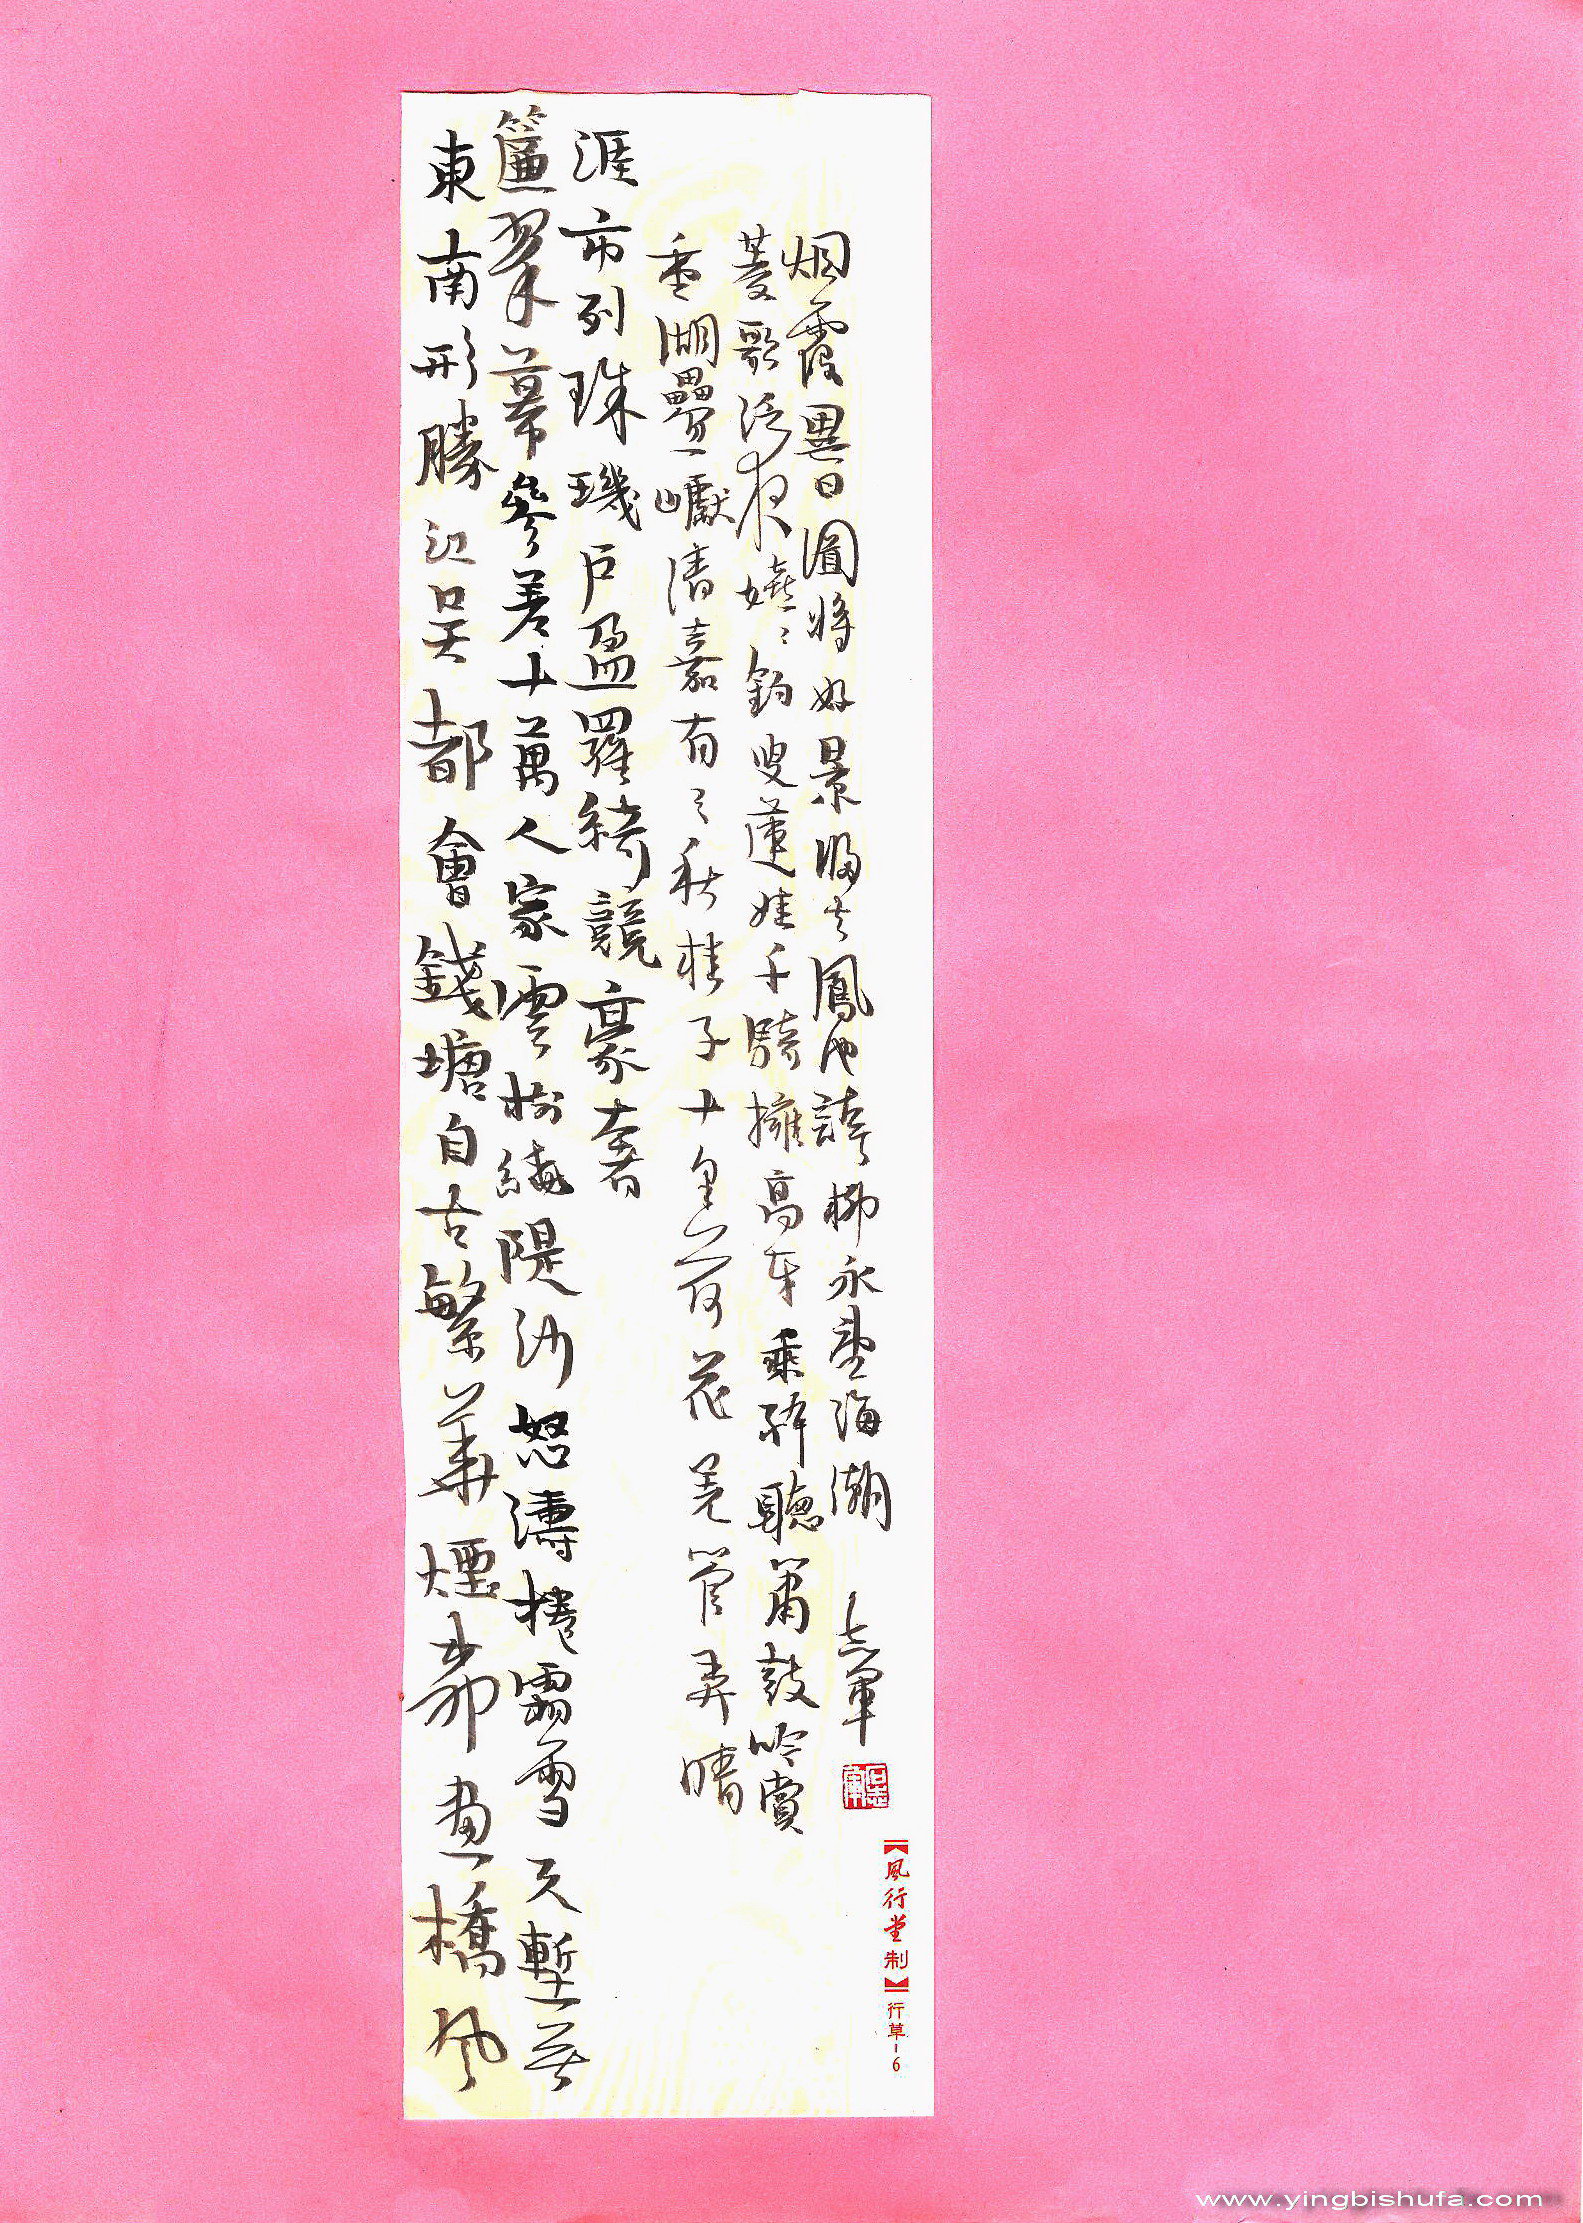 東南形勝江吳都會錢塘自古繁華煙柳畫橋風
簾翠幕參差十萬人家雲樹繞隄沙怒濤捲霜雪天塹無
涯市列珠璣戶盈羅綺競豪奢
重湖疊巘清嘉有三秋桂子十里荷花羌管弄晴
菱歌泛夜嬉〻釣叟蓮娃千騎擁高牙乘醉聽簫鼓吟賞
烟霞異日圖將好景歸去鳳池誇柳永望海潮 志軍
【風行堂制】行草-6
www.yingbishufa.com